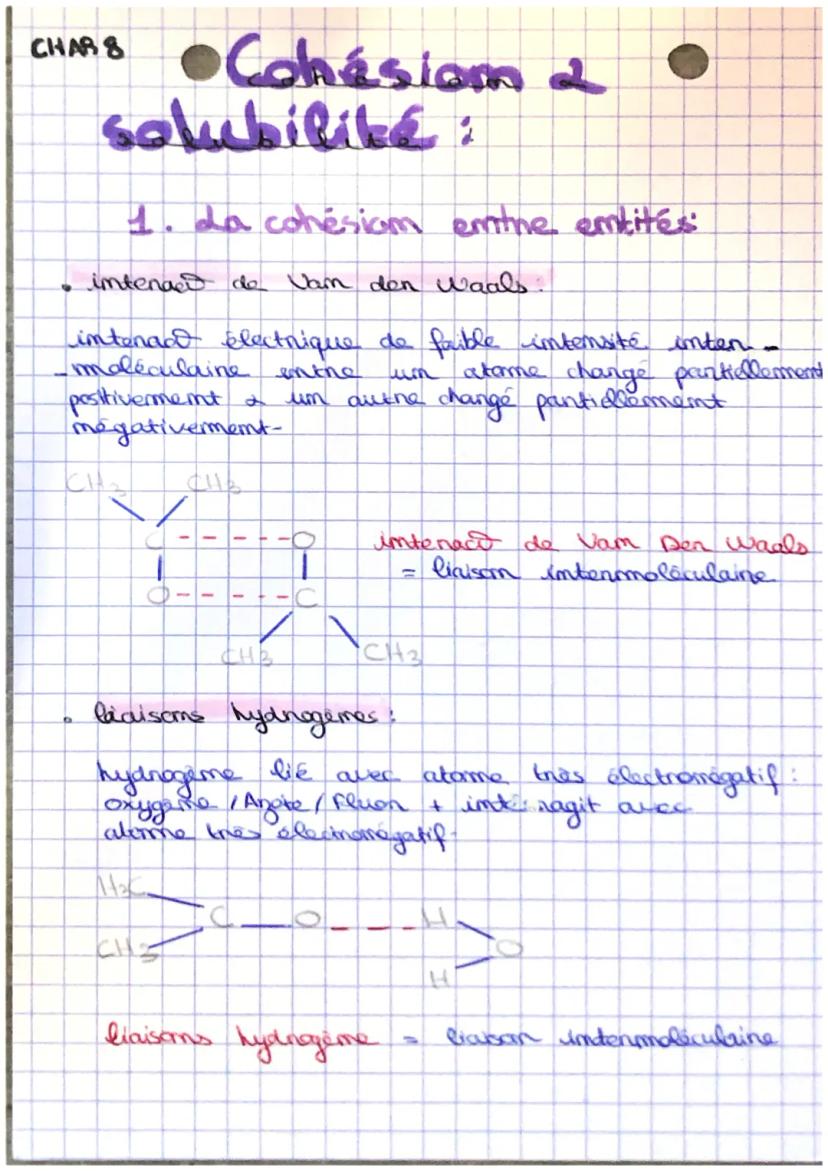 CHAP 8
Cohésion &
solubilité :
1. La cohésion entre entités:
• interact° de Van der Waals :
interact° électrique de faible intensité inter -
- moléculaire entre un atome chargé partiellement
positivement & un autre chargé partiellement
négativement-
CH3 CH3
C - - - - - O
O - - - - - C
interact° de Van Der Waals
= liaison intermoléculaire
CH3 CH3
• liaisons hydrogènes :
hydrogène lié avec atome très électronégatif :
oxygène / Azote / Fluor + intéragit avec
atome très électronégatif-
H3C
C — O - - - H
O
CH3
H
liaisons hydrogène = liaison intermoléculaire